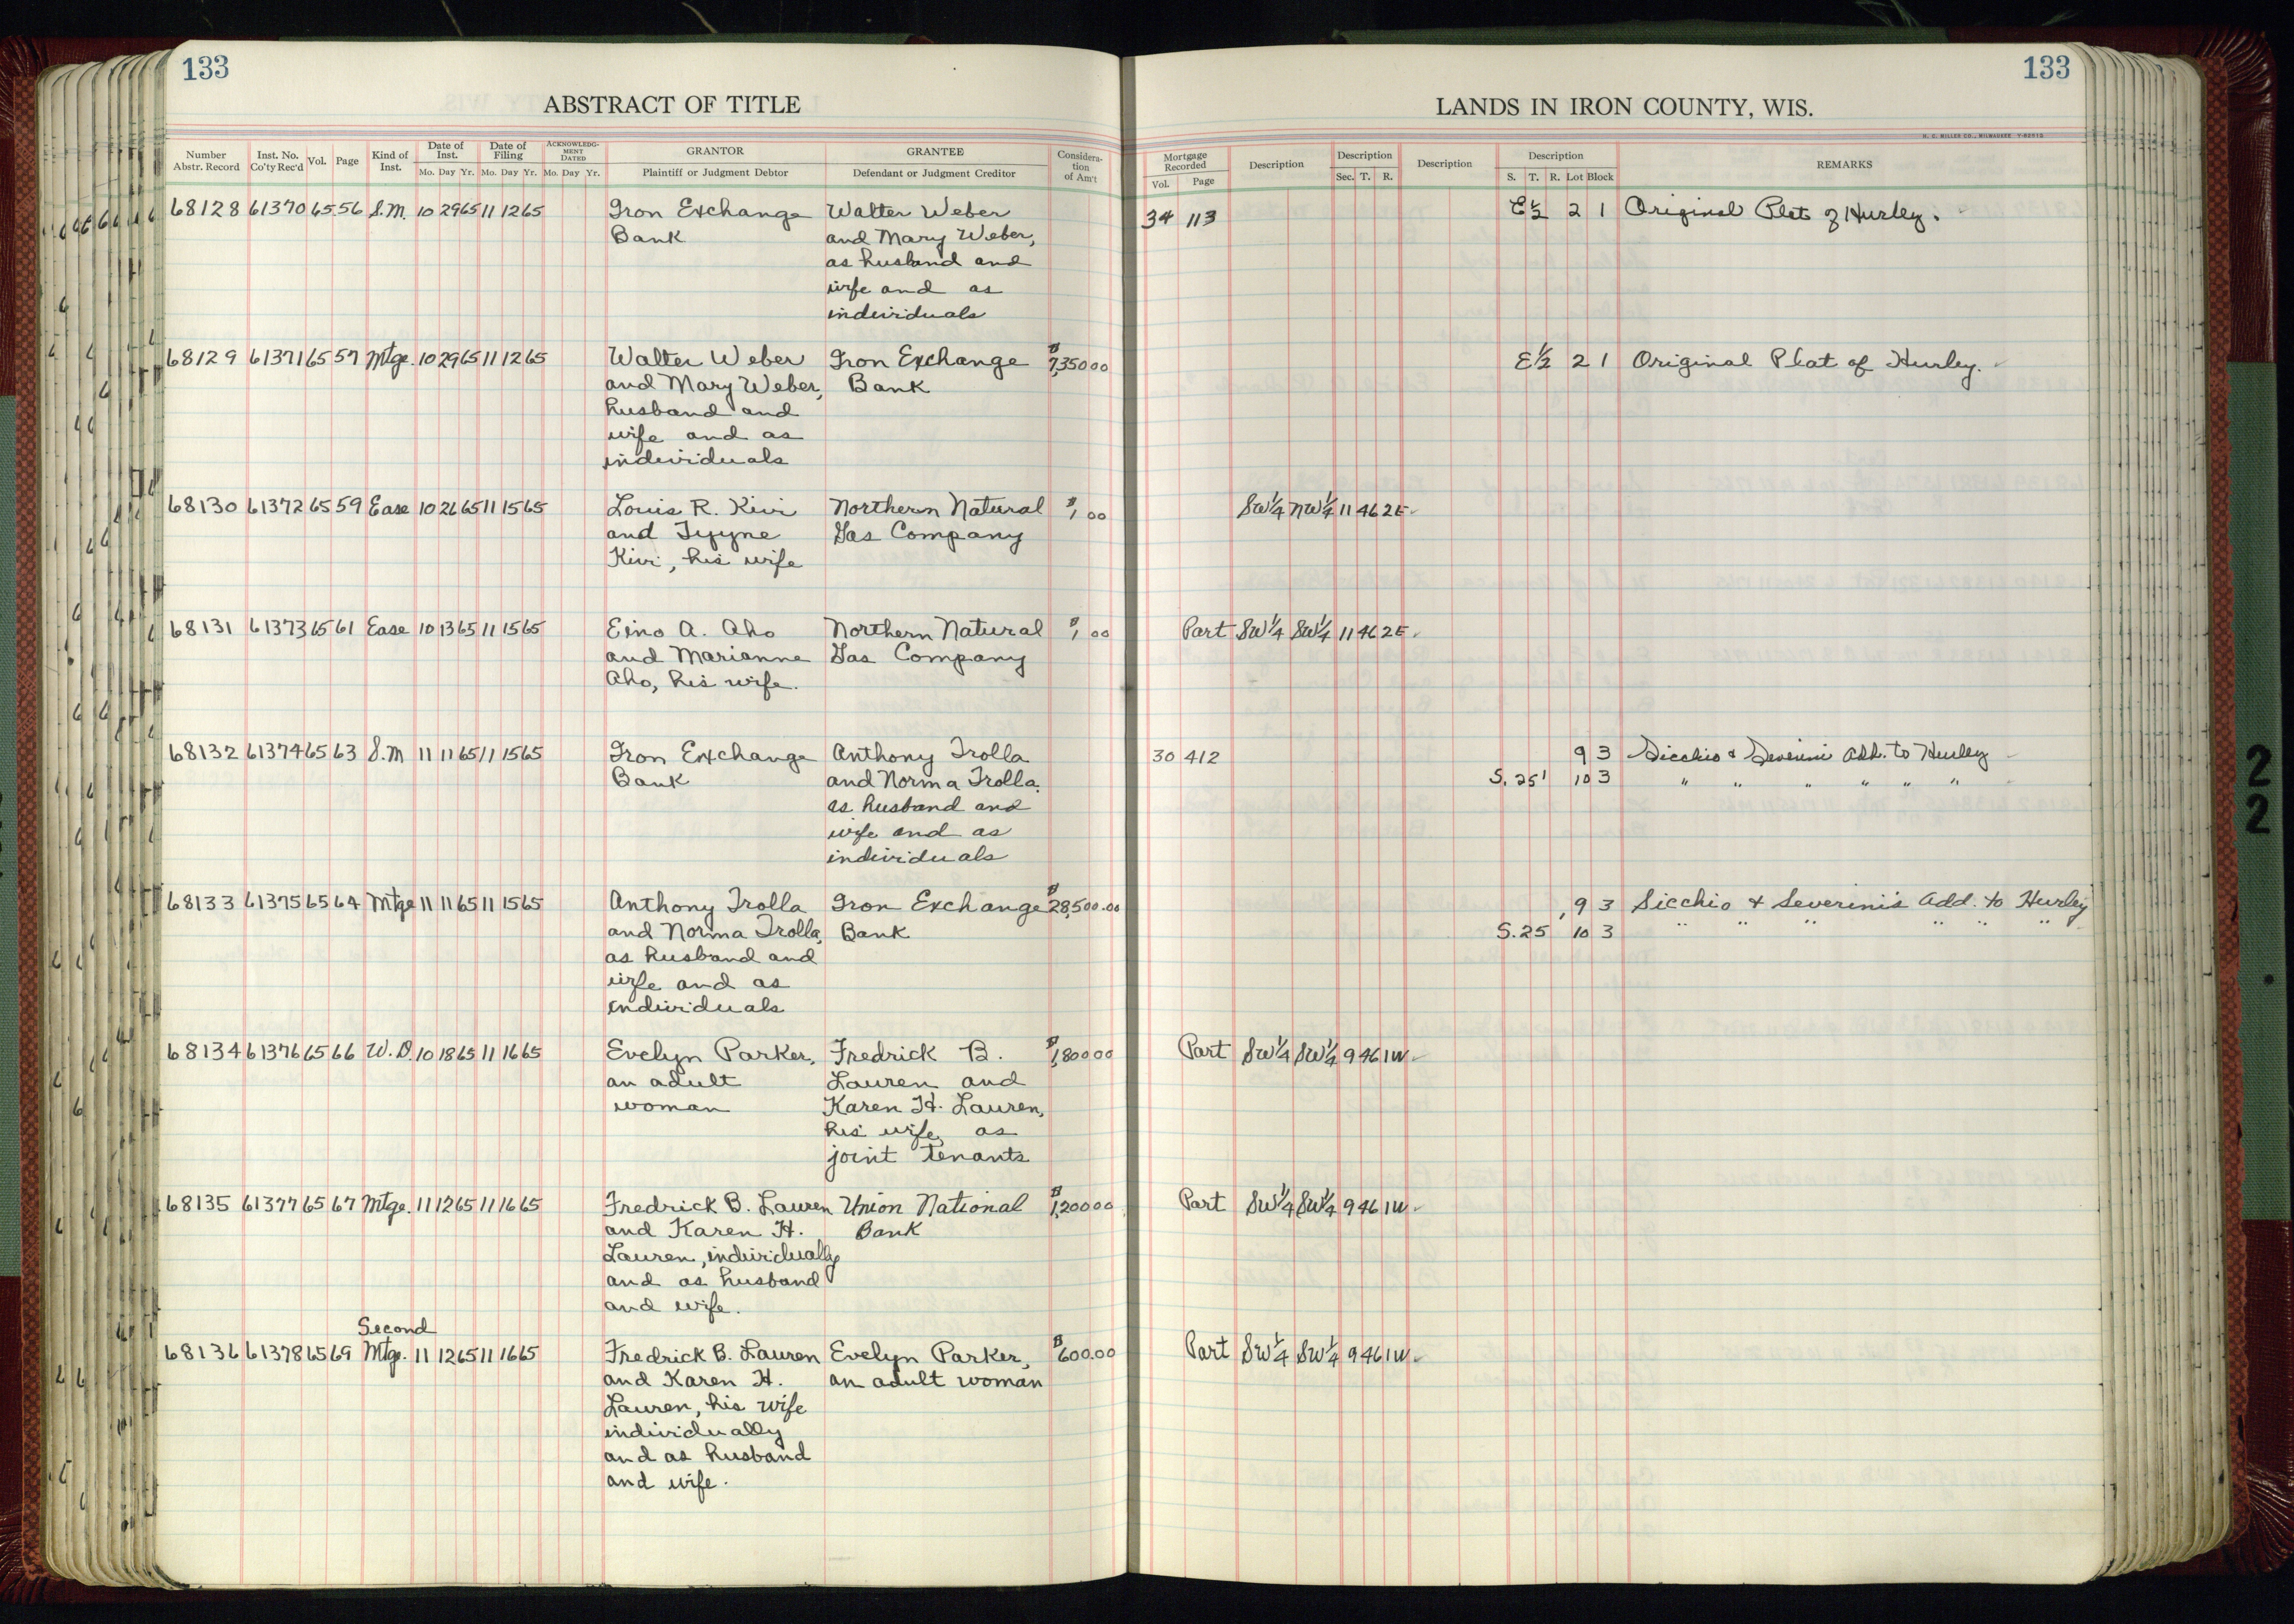 133
133
ABSTRACT OF TITLE
LANDS IN IRON COUNTY, WIS.
H. C. MILLER CO., MILWAUKEE
Number Abstr. Record Inst. No. Co'ty Rec'd Vol. Page Kind of Inst. Date of Inst. Mo. Day Yr. Date of Filing Mo. Day Yr. ACKNOWLEDG-MENT DATED Mo. Day Yr. GRANTOR Plaintiff or Judgment Debtor GRANTEE Defendant or Judgment Creditor Considera-tion of Am't
Mortgage Recorded Vol. Page Description Description Sec. T. R. Description Description S. T. R. Lot Block REMARKS
68128 61370 65 56 S.M. 10 29 65 11 12 65 Iron Exchange Walter Weber 34 113 E½ 2 1 Original Plat of Hurley.
Bank and Mary Weber,
as husband and
wife and as
individuals
68129 61371 65 57 Mtge. 10 29 65 11 12 65 Walter Weber Iron Exchange $7,350 00 E½ 2 1 Original Plat of Hurley.
and Mary Weber, Bank
husband and
wife and as
individuals
68130 61372 65 59 Ease 10 26 65 11 15 65 Louis R. Kivi Northern Natural $1,00 SW¼ NW¼ 11 46 2E
and Tyyne Gas Company
Kivi, his wife
68131 61373 65 61 Ease 10 13 65 11 15 65 Eino A. Aho Northern Natural $1,00 Part SW¼ SW¼ 11 46 2E
and Marianne Gas Company
Aho, his wife.
68132 61374 65 63 S.M 11 11 65 11 15 65 Iron Exchange Anthony Trolla 30 412 9 3 Sicchio & Severini Add. to Hurley
Bank and Norma Trolla, S. 25' 10 3 " " " " " "
as husband and
wife and as
individuals
68133 61375 65 64 Mtge 11 11 65 11 15 65 Anthony Trolla Iron Exchange $28,500.00 9 3 Sicchio & Severini's Add. to Hurley
and Norma Trolla, Bank S. 25 10 3 " " " " " "
as husband and
wife and as
individuals
68134 61376 65 66 W.D. 10 18 65 11 16 65 Evelyn Parker, Fredrick B. $1,800 00 Part SW¼ SW¼ 9 46 1W
an adult Lauren and
woman Karen H. Lauren,
his wife, as
joint tenants
68135 61377 65 67 Mtge. 11 12 65 11 16 65 Fredrick B. Lauren Union National $1,200 00 Part SW¼ SW¼ 9 46 1W
and Karen H. Bank
Lauren, individually
and as husband
and wife.
Second
68136 61378 65 69 Mtge. 11 12 65 11 16 65 Fredrick B. Lauren Evelyn Parker, $600.00 Part SW¼ SW¼ 9 46 1W
and Karen H. an adult woman
Lauren, his wife
individually
and as husband
and wife.
2
2